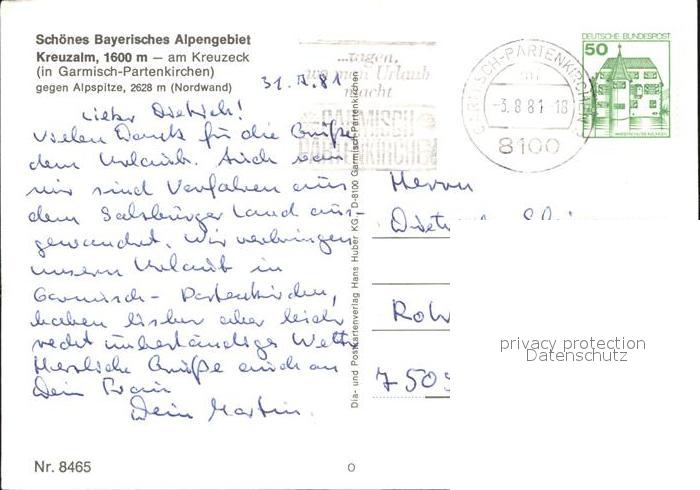 Schönes Bayerisches Alpengebiet
Kreuzalm, 1600 m — am Kreuzeck
(in Garmisch-Partenkirchen)
gegen Alpspitze, 2628 m (Nordwand)
31.7.81
Lieber Dietrich!
Vielen Dank für die Grüße
dem Urlaub. Auch von
mir sind Vorfahren aus
dem Salzburger Land aus-
gewandert. Wir verbringen
unsern Urlaub in
Garmisch-Partenkirchen,
haben bisher aber leider
recht unbeständiges Wetter
Herzliche Grüße auch an
Dein Frau
Dein Martin.
Nr. 8465
Dia- und Postkartenverlag Hans Huber KG, D-8100 Garmisch-Partenkirchen
...tagen,
wo man Urlaub
macht
GARMISCH
PARTENKIRCHEN
GARMISCH-PARTENKIRCHEN
-3.8.81-18
8100
DEUTSCHE BUNDESPOST
50
Herrn
Diet
Rohr
7505
privacy protection
Datenschutz